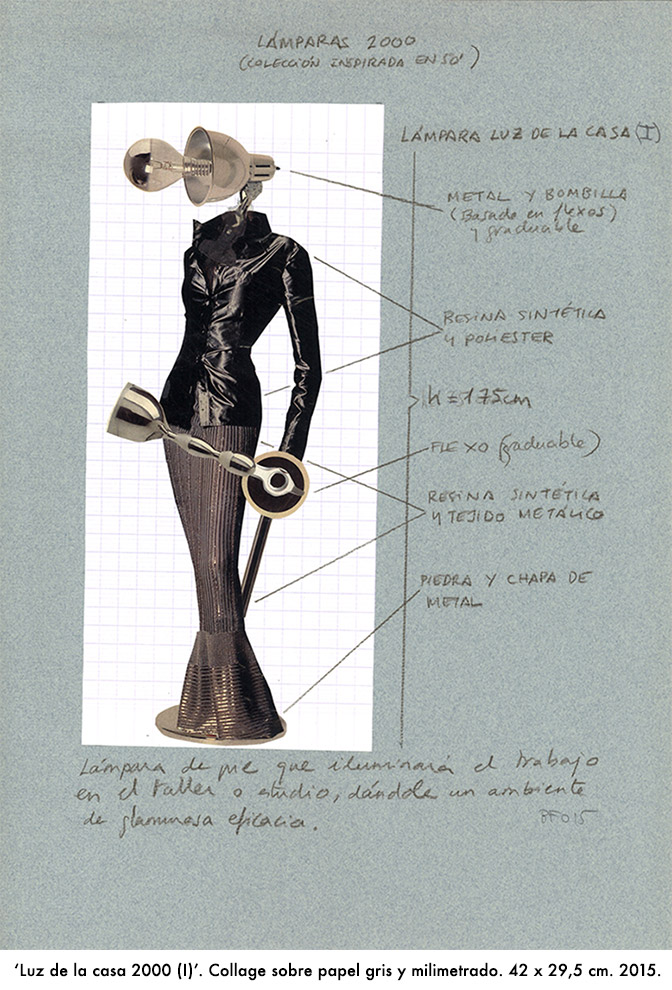 LÁMPARAS 2000
(COLECCIÓN INSPIRADA EN 50')
LÁMPARA LUZ DE LA CASA (I)
METAL Y BOMBILLA
(Basada en flexos)
y graduable
RESINA SINTÉTICA
Y POLIESTER
h = 175cm
FLEXO (graduable)
RESINA SINTÉTICA
Y TEJIDO METÁLICO
PIEDRA Y CHAPA DE
METAL
Lámpara de pie que iluminará el trabajo
en el taller o estudio, dándole un ambiente
de glamurosa eficacia.
PF015
‘Luz de la casa 2000 (I)’. Collage sobre papel gris y milimetrado. 42 x 29,5 cm. 2015.